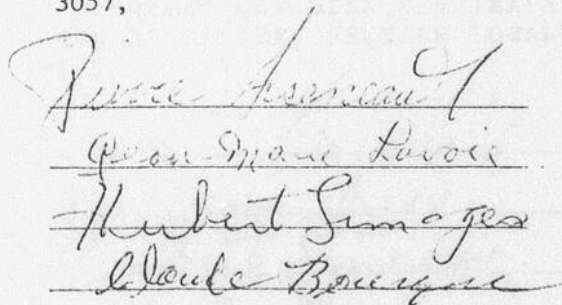 3057,
Pierre Arseneault
Jean-Marie Lavoie
Hubert Limoges
Claude Bourque